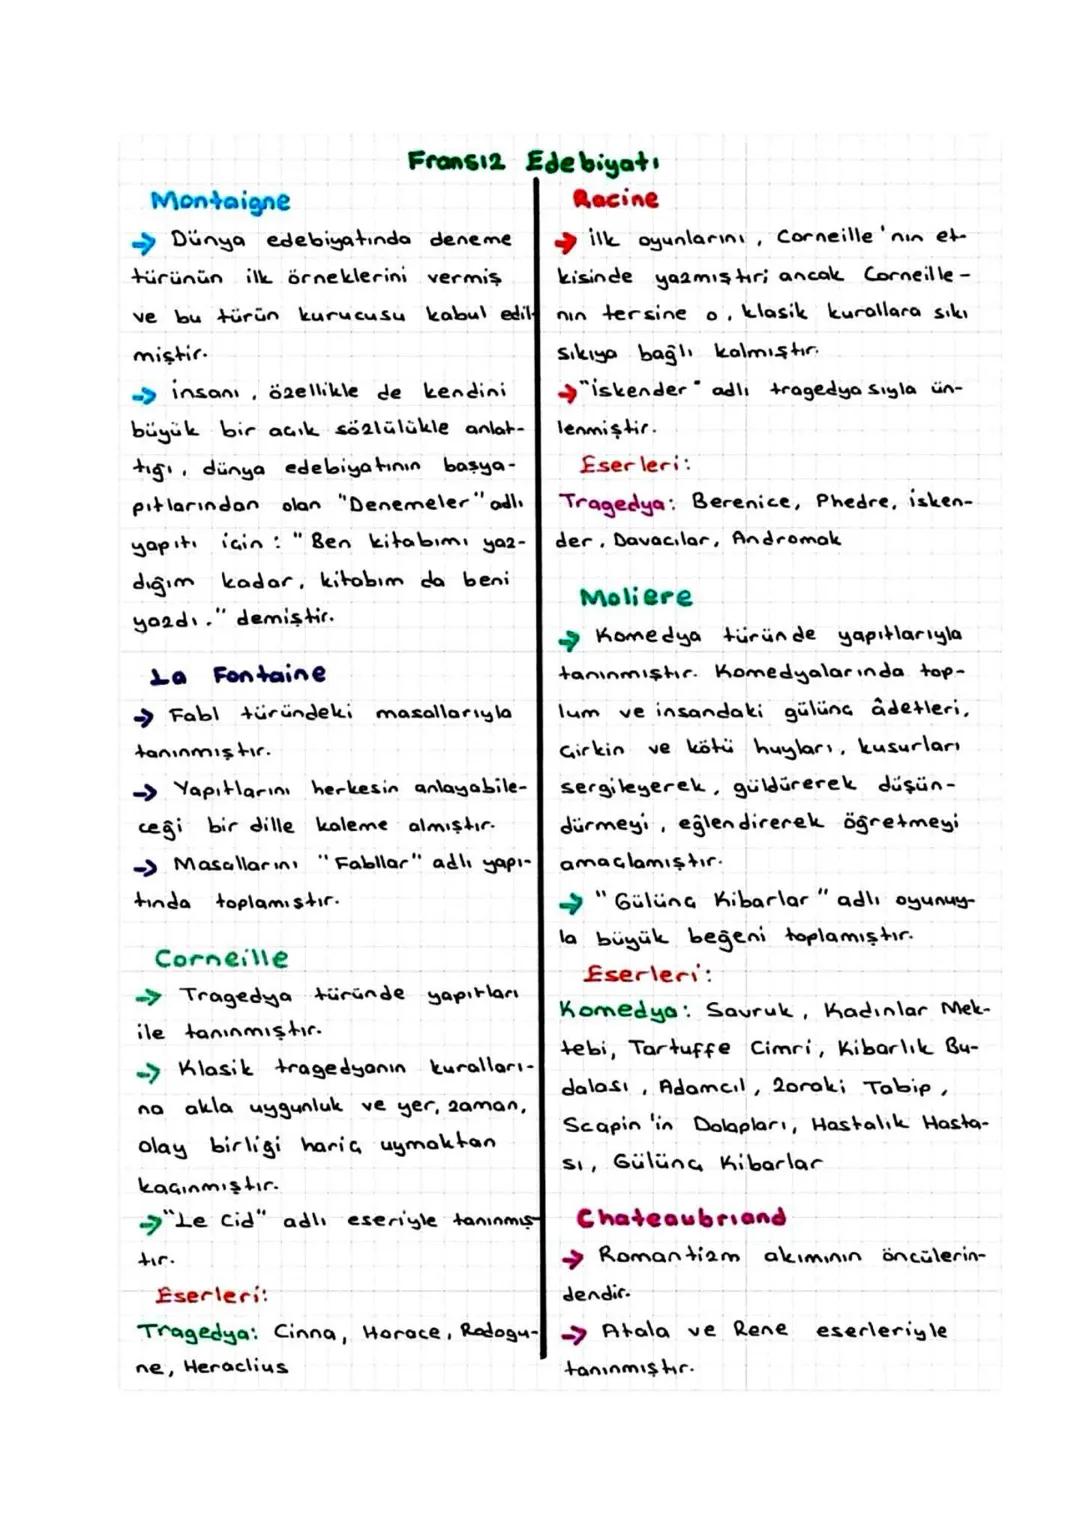 Fransız Edebiyatı
Montaigne
→ Dünya edebiyatında deneme
türünün ilk örneklerini vermiş
ve bu türün kurucusu kabul edil-
miştir.
→ İnsanı, özellikle de kendini
büyük bir açık sözlülükle anlat-
tığı, dünya edebiyatının başya-
pıtlarından olan "Denemeler" adlı
yapıtı için : "Ben kitabımı yaz-
dığım kadar, kitabım da beni
yazdı." demiştir.
La Fontaine
→ Fabl türündeki masallarıyla
tanınmıştır.
→ Yapıtlarını herkesin anlayabile-
ceği bir dille kaleme almıştır.
→ Masallarını "Fabllar" adlı yapı-
tında toplamıştır.
Corneille
→ Tragedya türünde yapıtları
ile tanınmıştır.
→ Klasik tragedyanın kuralları-
na akla uygunluk ve yer, zaman,
olay birliği hariç uymaktan
kaçınmıştır.
→ "Le Cid" adlı eseriyle tanınmış-
tır.
Eserleri:
Tragedya: Cinna, Horace, Rodogu-
ne, Heraclius
Racine
→ İlk oyunlarını, Corneille'nın et-
kisinde yazmıştır; ancak Corneille-
nın tersine o, klasik kurallara sıkı
sıkıya bağlı kalmıştır.
→ "İskender" adlı tragedyasıyla ün-
lenmiştir.
Eserleri:
Tragedya: Berenice, Phedre, İsken-
der, Davacılar, Andromak
Moliere
→ Komedya türünde yapıtlarıyla
tanınmıştır. Komedyalarında top-
lum ve insandaki gülünç âdetleri,
çirkin ve kötü huyları, kusurları
sergileyerek, güldürerek düşün-
dürmeyi, eğlendirerek öğretmeyi
amaçlamıştır.
→ "Gülünç Kibarlar" adlı oyunuy-
la büyük beğeni toplamıştır.
Eserleri:
Komedya: Savruk, Kadınlar Mek-
tebi, Tartuffe Cimri, Kibarlık Bu-
dalası, Adamcıl, Zoraki Tabip,
Scapin'in Dolapları, Hastalık Hasta-
sı, Gülünç Kibarlar
Chateaubriand
→ Romantizm akımının öncülerin-
dendir.
→ Atala ve Rene eserleriyle
tanınmıştır.